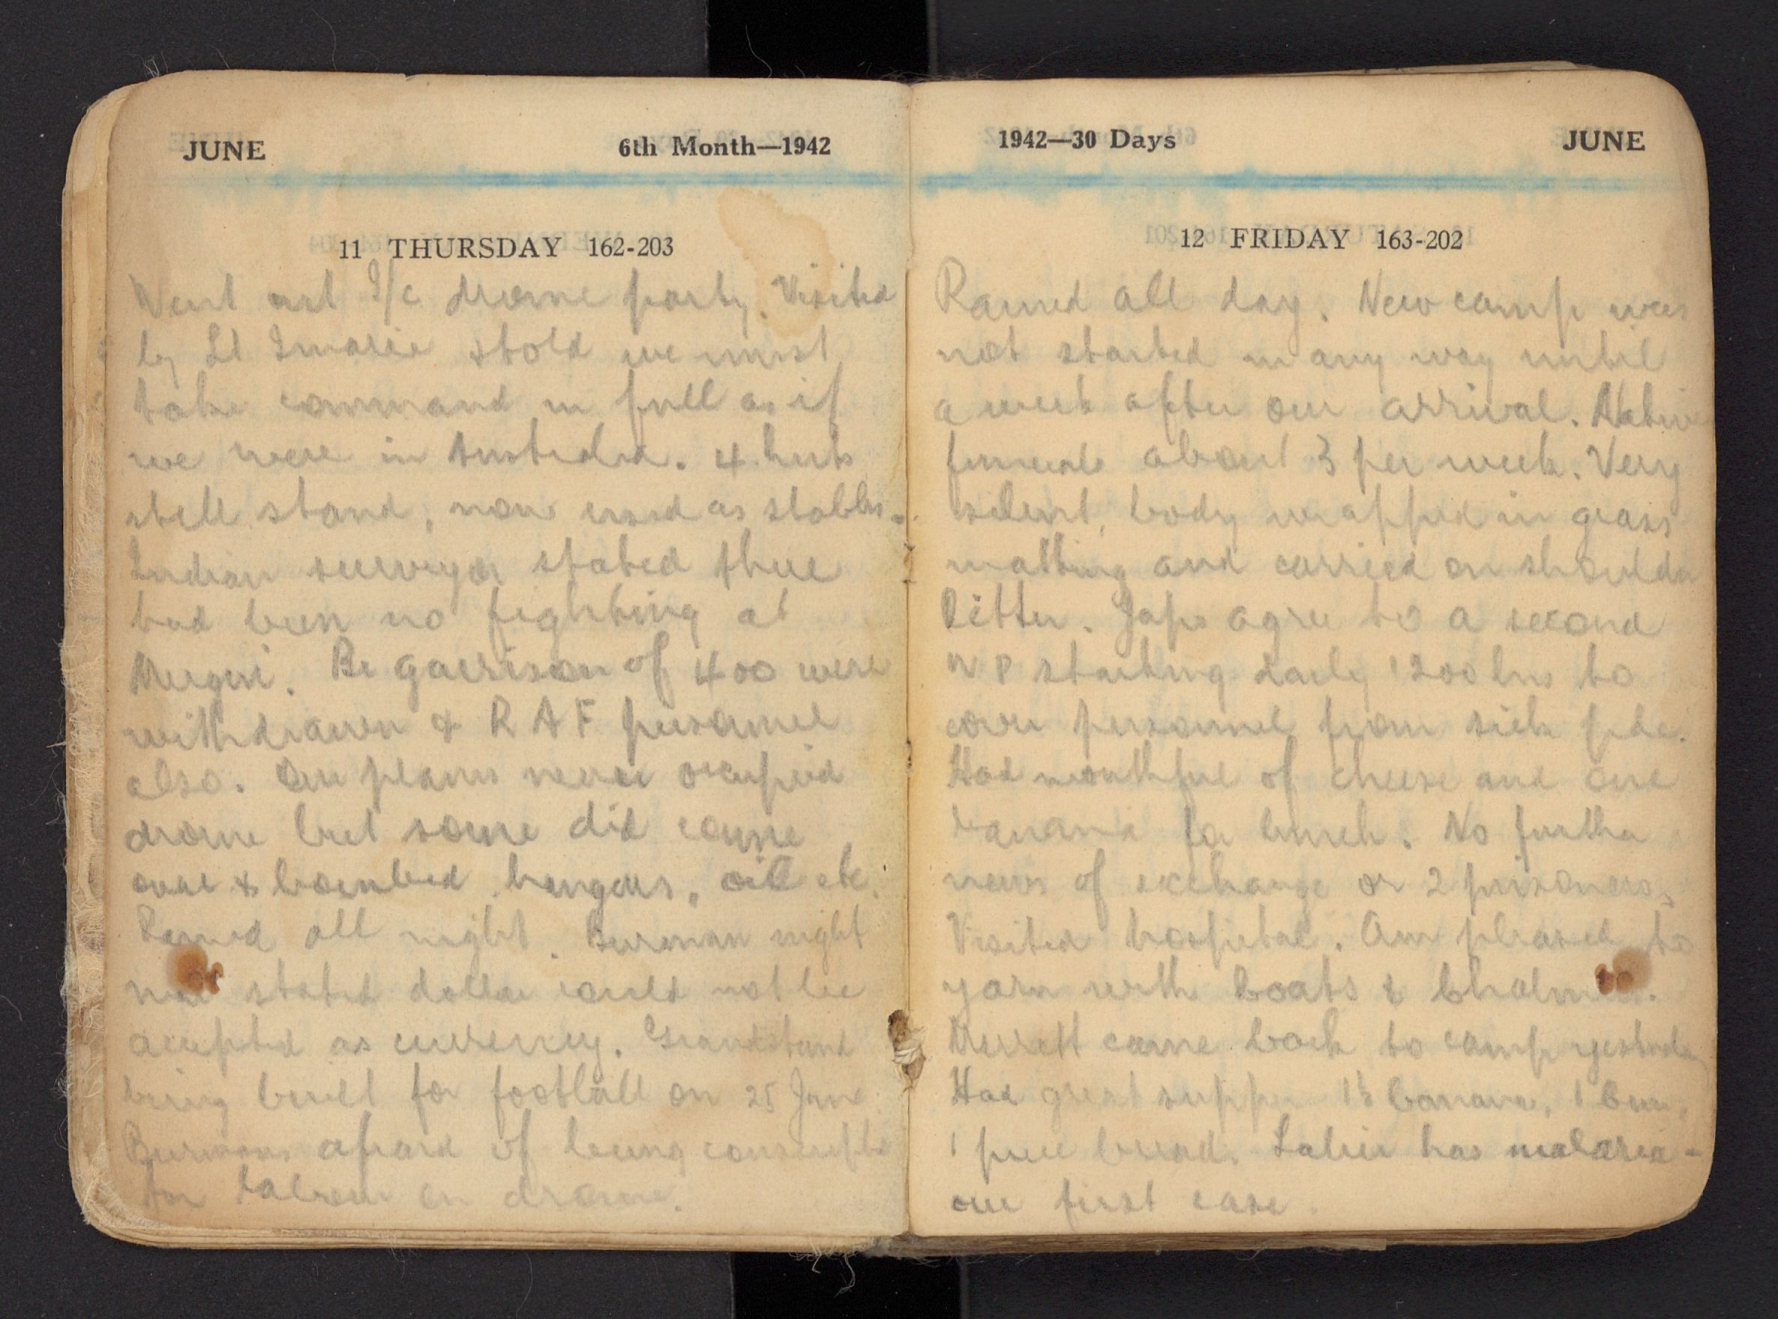 JUNE 6th Month—1942
11 THURSDAY 162-203
Went out I/c drome party. Visited
by Lt Imasie & told we must
take command in full as if
we were in Australia. 4 huts
still stand, now used as stables.
Indian surveyor stated there
had been no fighting at
Mergui. Br garrison of 400 were
withdrawn & RAF personnel
also. Our planes never occupied
drome but some did come
over & bombed hangars, oil etc.
Rained all night. Burman night
stated dollar could not be
accepted as currency. Grandstand
being built for football on 25 June
Burmans afraid of being conscripted
for labour on drome.
1942—30 Days JUNE
12 FRIDAY 163-202
Rained all day. New camp was
not started in any way until
a week after our arrival. Native
funerals about 3 per week. Very
silent, body wrapped in grass
matting and carried on shoulder
litter. Japs agree to a second
WP starting daily 1200 hrs to
cover personnel from sick pde.
Had mouthful of cheese and one
banana for lunch. No further
news of exchange or 2 prisoners.
Visited hospital. Am pleased to
yarn with Coats &
came back to camp yesterday
Had great supper 1½ banana, 1 bun,
1 piece bread. has malaria -
our first case.